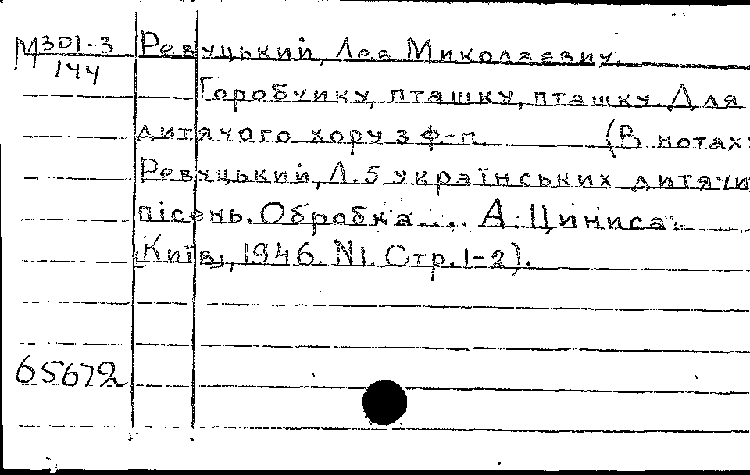 М301-3 Ревуцький, Лев Миколаевич.
144
Горобчику, пташку, пташку. Для
дитячого хору з ф-п. (В нотах:
Ревуцький, Л. 5 українських дитячи
пісень. Обробка.... А. Циниса.
Київ, 1946. N1. Стр. 1-2).
65672